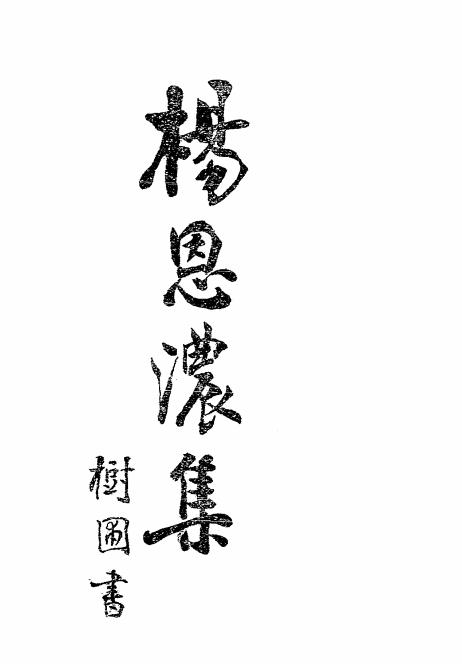 楊恩濃集
樹圃書